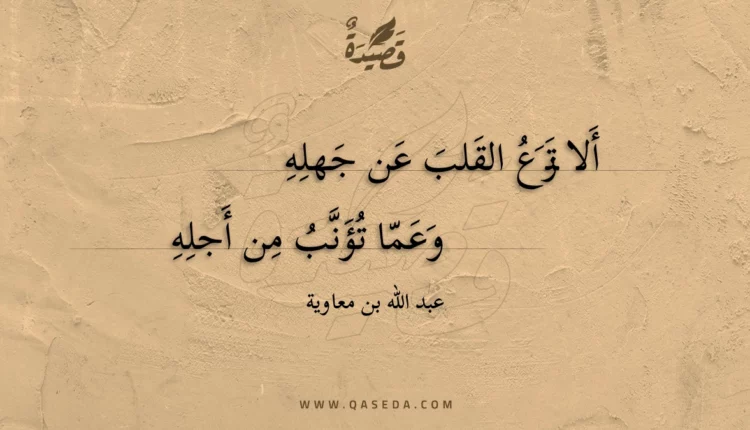 قَصِيدَةٌ
أَلا تَزَعُ القَلبَ عَن جَهلِهِ
وَعَمّا تُؤَنَّبُ مِن أَجلِهِ
عبد الله بن معاوية
WWW.QASEDA.COM